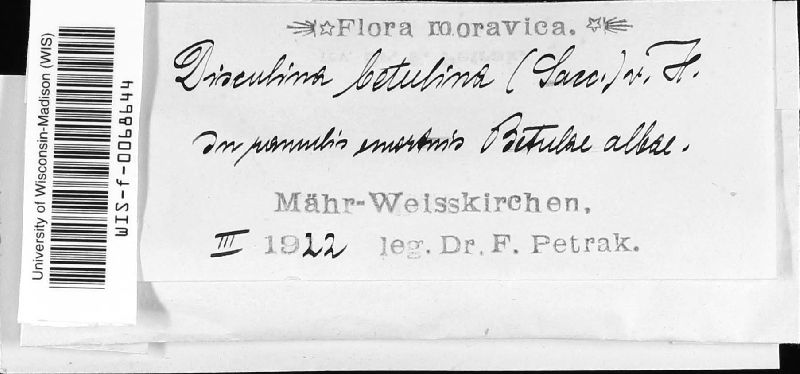 University of Wisconsin-Madison (WIS)
WIS-f-0068644
Flora moravica.
Disculina betulina (Sacc.) v. H.
In ramulis emortuis Betulae albae.
Mähr-Weisskirchen,
III 1922 leg. Dr. F. Petrak.